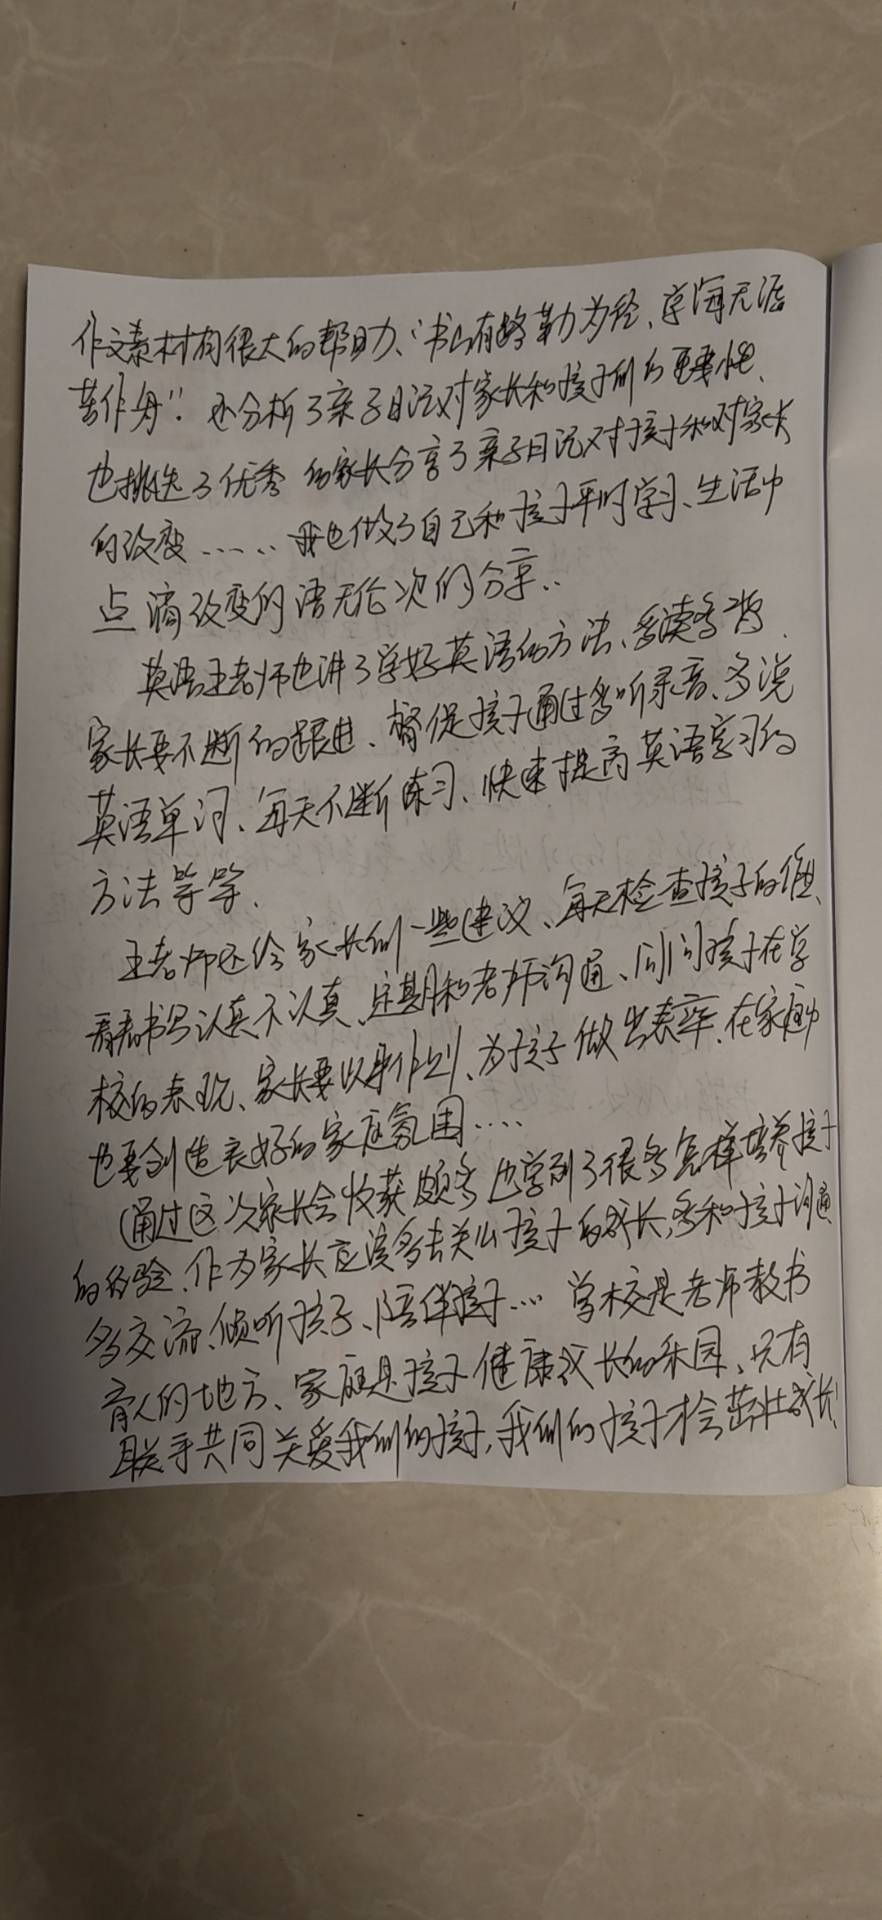 作文素材有很大的帮助、"书山有路勤为径、学海无涯
苦作舟"! 还分析了亲子日记对家长和孩子们的重要性、
也挑选了优秀的家长分享了亲子日记对孩子和对家长
的改变……我也做了自己和孩子平时学习、生活中
点滴改变的语无伦次的分享..
英语王老师也讲了学好英语的方法、多读多背、
家长要不断的跟进、督促孩子通过多听录音、多说
英语单词、每天不断练习、快速提高英语学习的
方法等等、
王老师还给家长们一些建议、每天检查孩子的作业、
看看书写认真不认真、定期和老师沟通、问问孩子在学
校的表现、家长要以身作则、为孩子做出表率、在家庭中
也要创造良好的家庭氛围……
通过这次家长会收获颇多也学到了很多怎样培养孩子
的经验、作为家长应该多去关心孩子的成长,多和孩子沟通
多交流、倾听孩子、陪伴孩子… 学校是老师教书
育人的地方、家庭是孩子健康成长的乐园、只有
联手共同关爱我们的孩子,我们的孩子才会茁壮成长!